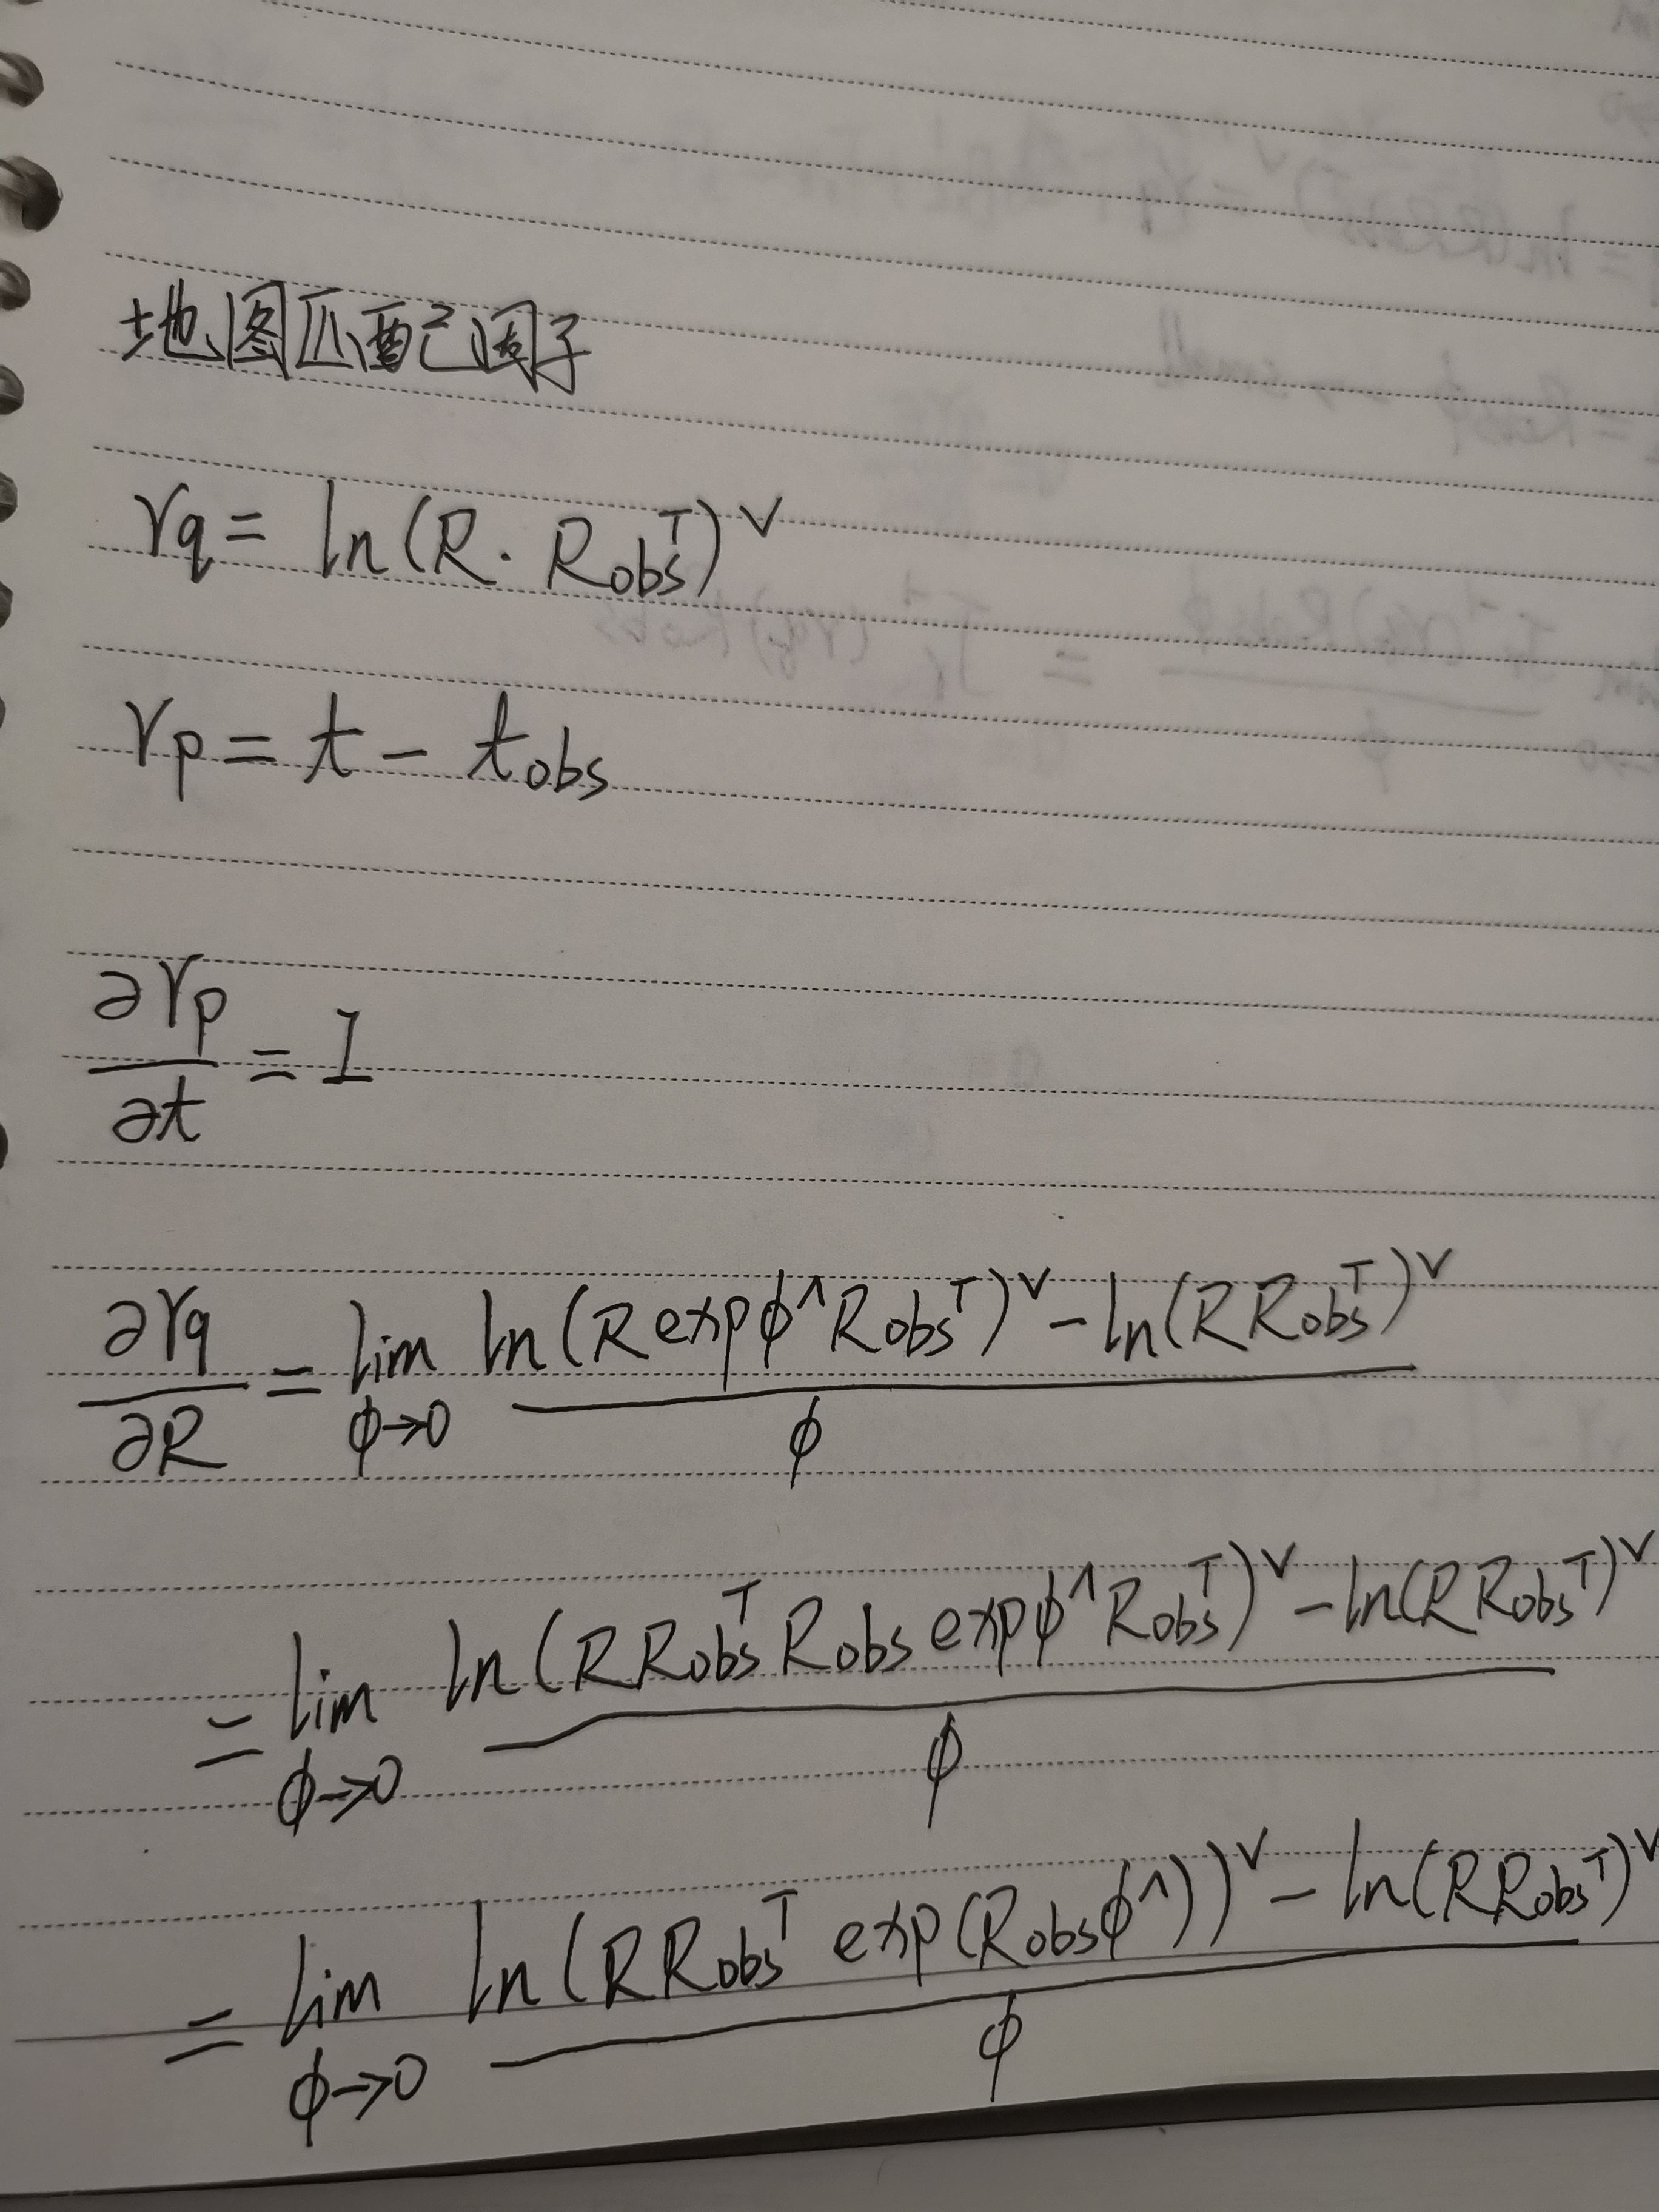 地图匹配因子
rq = ln(R · Robsᵀ)ᵛ
rp = t − tobs
∂rp/∂t = I
∂rq/∂R = lim ϕ→0 (ln(R expϕ^ Robsᵀ)ᵛ − ln(R Robsᵀ)ᵛ) / ϕ
= lim ϕ→0 (ln(R Robsᵀ Robs expϕ^ Robsᵀ)ᵛ − ln(R Robsᵀ)ᵛ) / ϕ
= lim ϕ→0 (ln(R Robsᵀ exp(Robs ϕ^))ᵛ − ln(R Robsᵀ)ᵛ) / ϕ